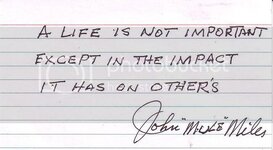 A LIFE IS NOT IMPORTANT
EXCEPT IN THE IMPACT
IT HAS ON OTHER'S
John "MULE" Miles